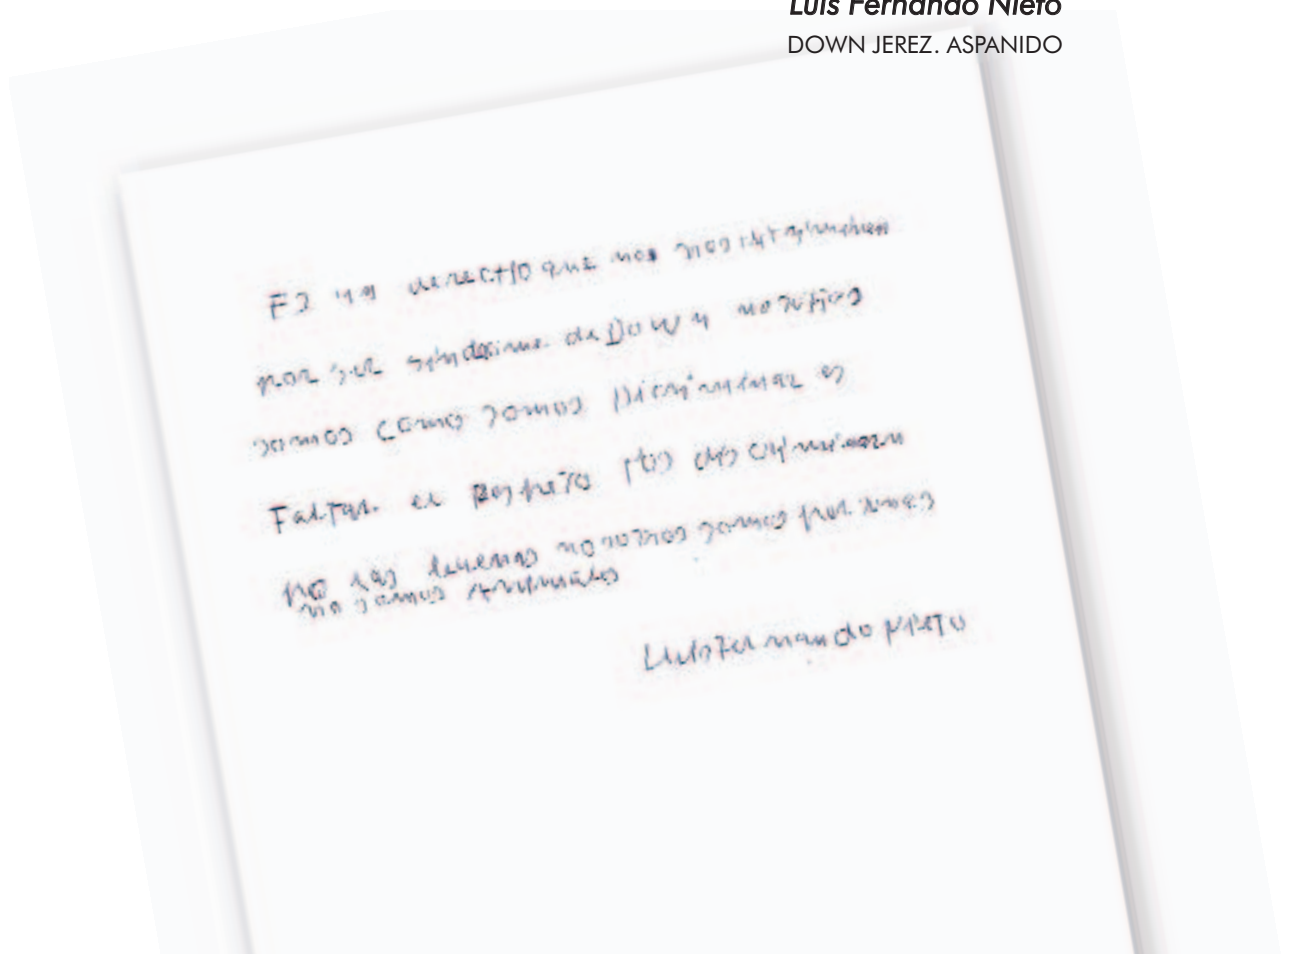 Luis Fernando Nieto
DOWN JEREZ. ASPANIDO
Es un derecho que nos
por ser sindrome de Down nosotros
somos como somos Discriminar es
Faltar el Respeto
no las nosotros somos personas
no somos Animales
Luis Fernando Nieto